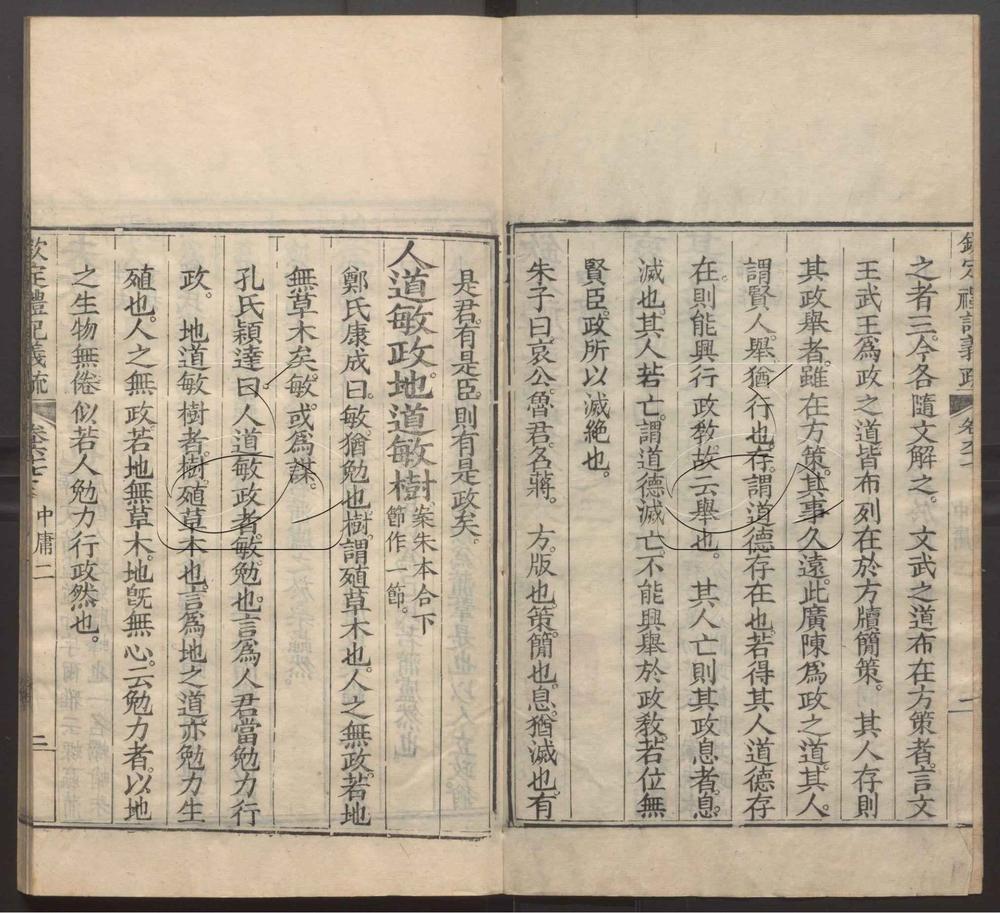 欽定禮記義疏
之者三。今各隨文解之。 文武之道布在方策者。言文
王武王爲政之道皆布列在於方牘簡策。 其人存則
其政舉者。雖在方策。其事久遠。此廣陳爲政之道。其人。
謂賢人。舉猶行也。存。謂道德存在也。若得其人道德存
在。則能興行政教。故云舉也。 其人亡則其政息者。息。
滅也。其人若亡。謂道德滅亡。不能興舉於政教。若位無
賢臣。政所以滅絕也。
朱子曰。哀公。魯君。名蔣。 方。版也。策。簡也。息。猶滅也。有
是君。有是臣。則有是政矣。
人道敏政。地道敏樹。案朱本合下
節作一節。
鄭氏康成曰。敏。猶勉也。樹。謂殖草木也。人之無政。若地
無草木矣。敏。或爲謀。
孔氏穎達曰。人道敏政者。敏。勉也。言爲人君當勉力行
政。 地道敏樹者。樹。殖草木也。言爲地之道。亦勉力生
殖也。人之無政。若地無草木。地旣無心。云勉力者。以地
之生物無倦。似若人勉力行政然也。
欽定禮記義疏
中庸二
二